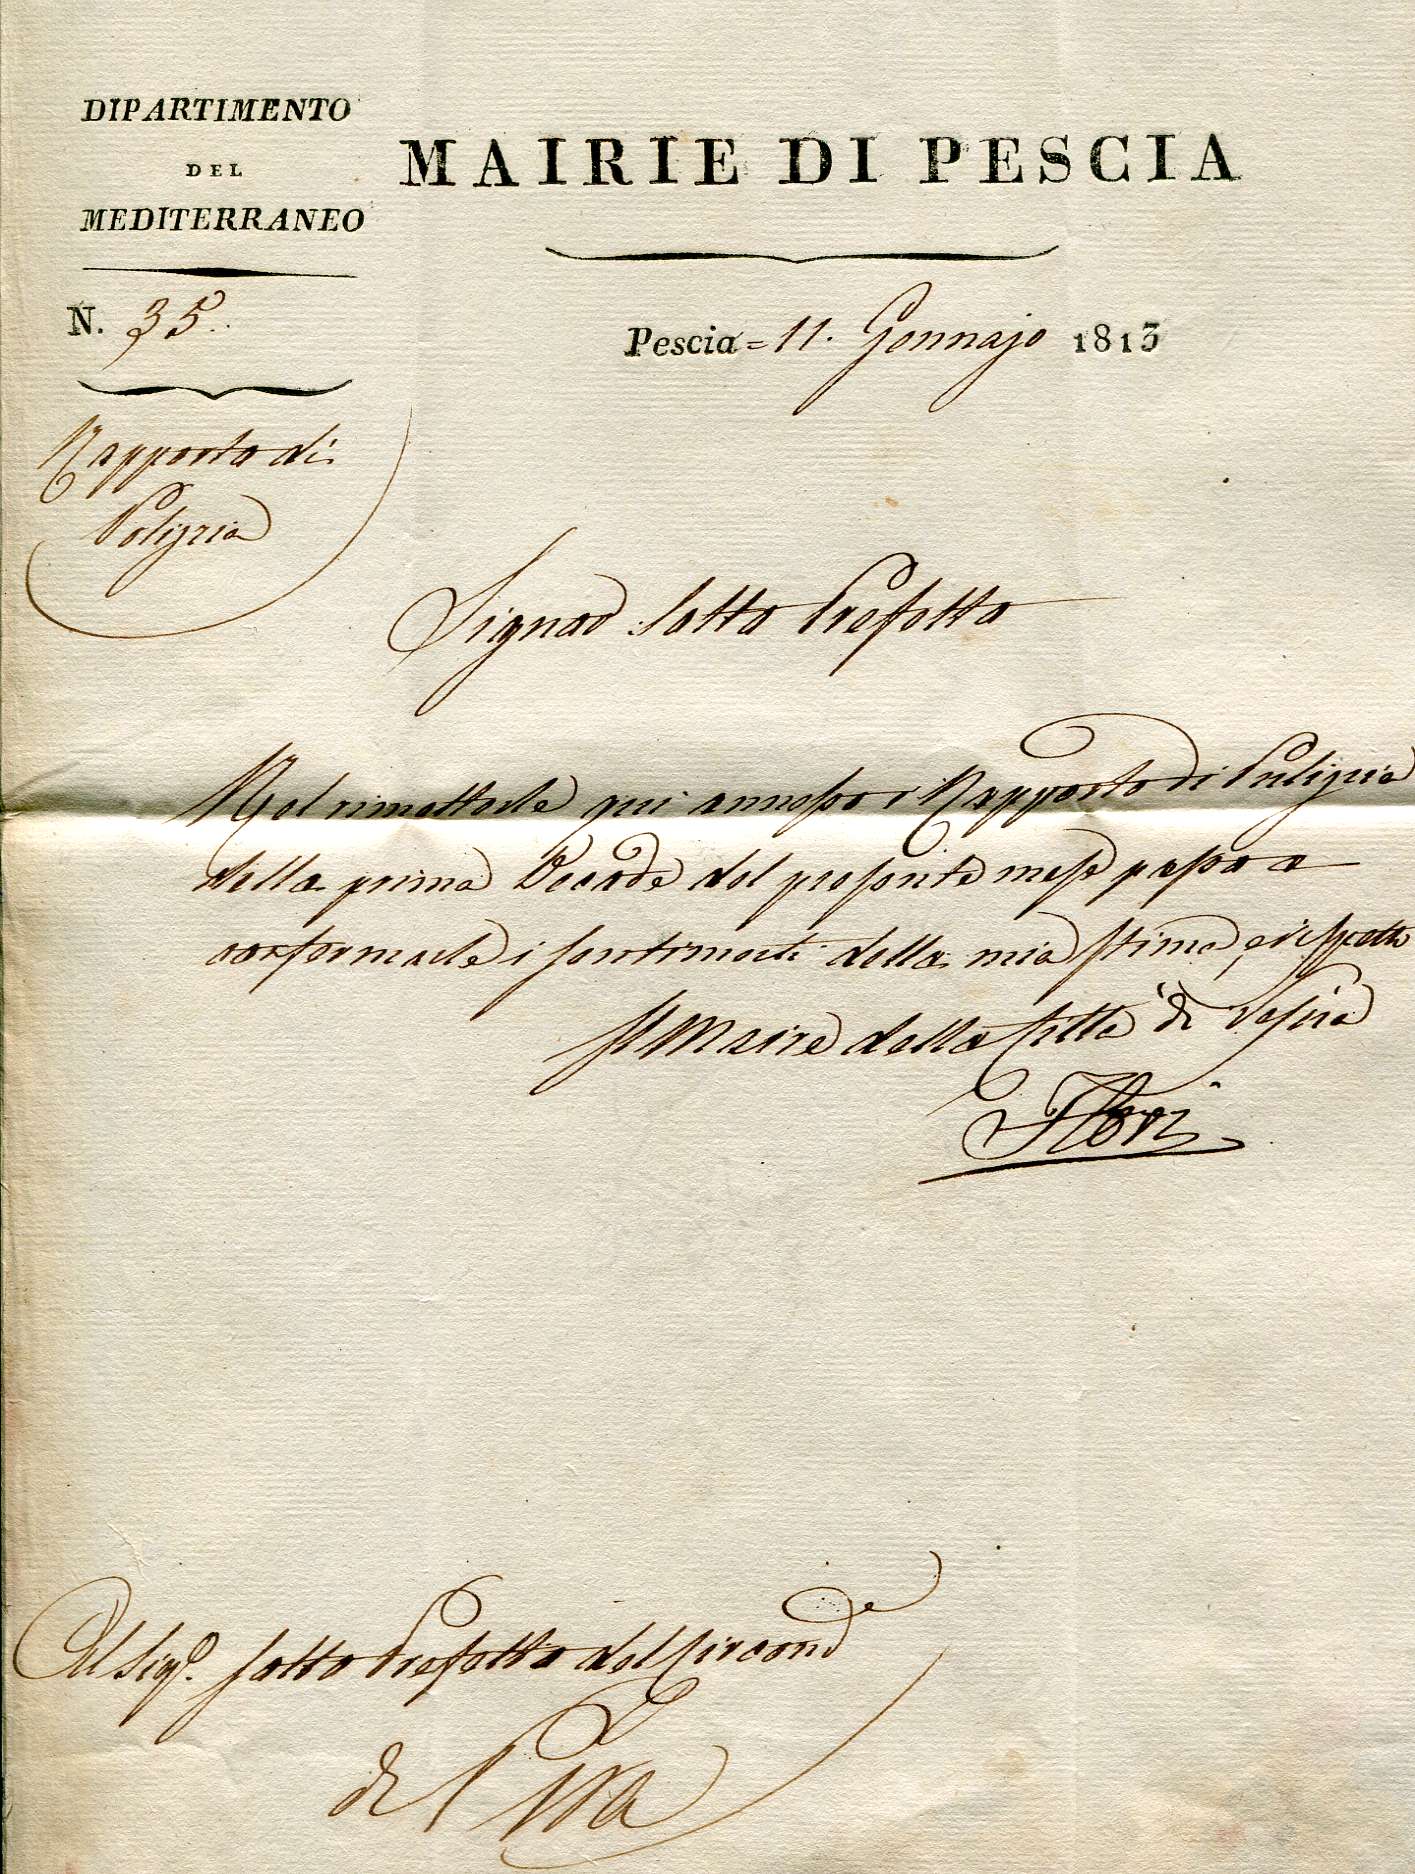 DIPARTIMENTO
DEL
MEDITERRANEO
MAIRIE DI PESCIA
N. 35.
Pescia = 11. Gennajo 1813
Rapporto di
Polizzia
Signor Sotto Prefetto
Nel rimetterle qui annesso il Rapporto di Pulizzia
della prima Decade del presente mese passo a
confermarle i sentimenti della mia stima, e rispetto
Il Maire della Città di Pescia
Flori
Al Sigr. Sotto Prefetto del Circond
di Pisa